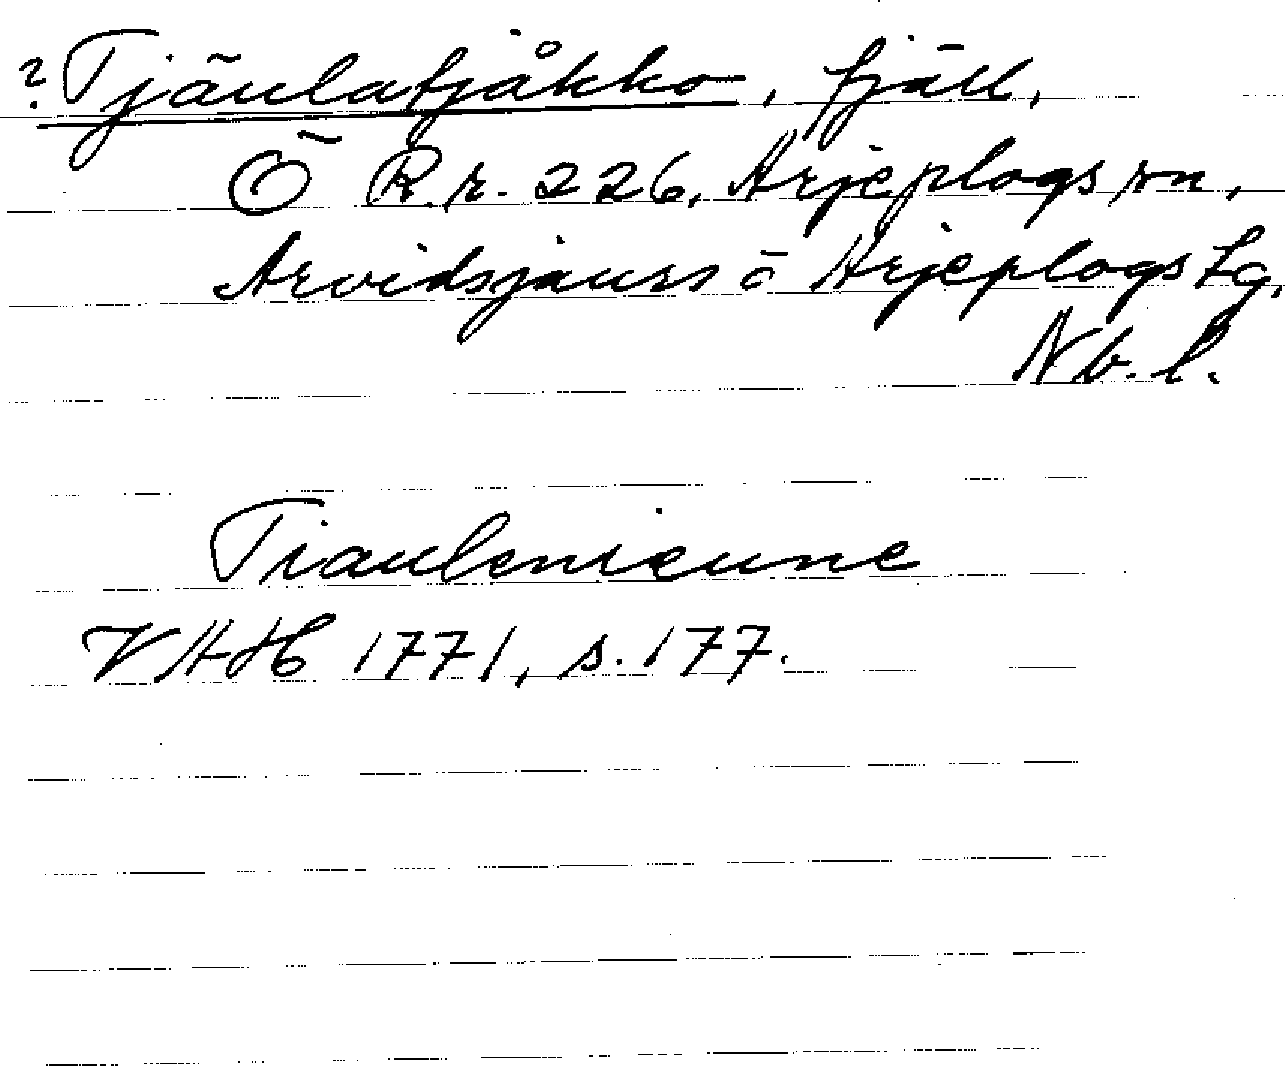 ? Tjäulatjåkko, fjäll,
Ö R.r. 226, Arjeplogs sn,
Arvidsjaurs o Arjeplogs tg,
Nb. l.
Tiaulenieune
VHAH 1771, s. 177.